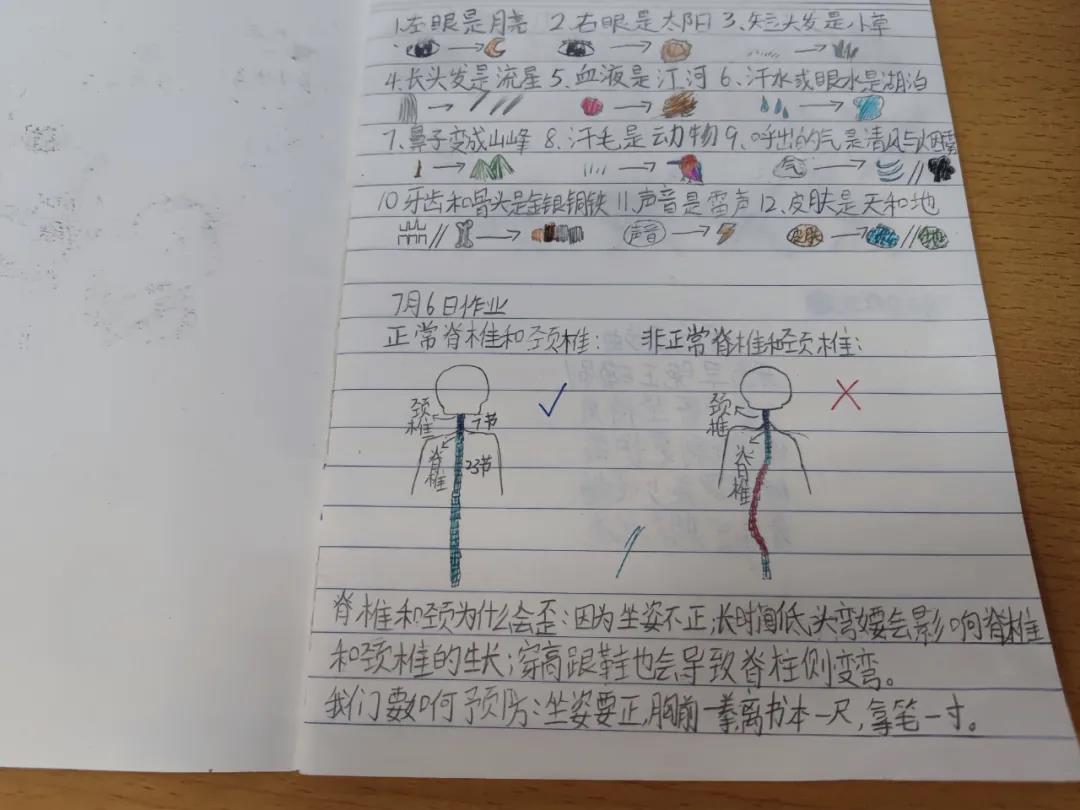 1.左眼是月亮 2.右眼是太阳 3.短头发是小草
4.长头发是流星 5.血液是江河 6.汗水或眼水是湖泊
7.鼻子变成山峰 8.汗毛是动物 9.呼出的气是清风与烟雾
气
10 牙齿和骨头是金银铜铁 11.声音是雷声 12.皮肤是天和地
声音 皮肤 天 地
7月6日作业
正常脊椎和颈椎: 非正常脊椎和颈椎:
颈椎 7节 颈椎
脊椎 23节 脊椎
脊椎和颈为什么会歪:因为坐姿不正,长时间低头弯腰会影响脊椎
和颈椎的生长;穿高跟鞋也会导致脊柱侧变弯。
我们要如何预防:坐姿要正,胸前一拳离书本一尺,拿笔一寸。